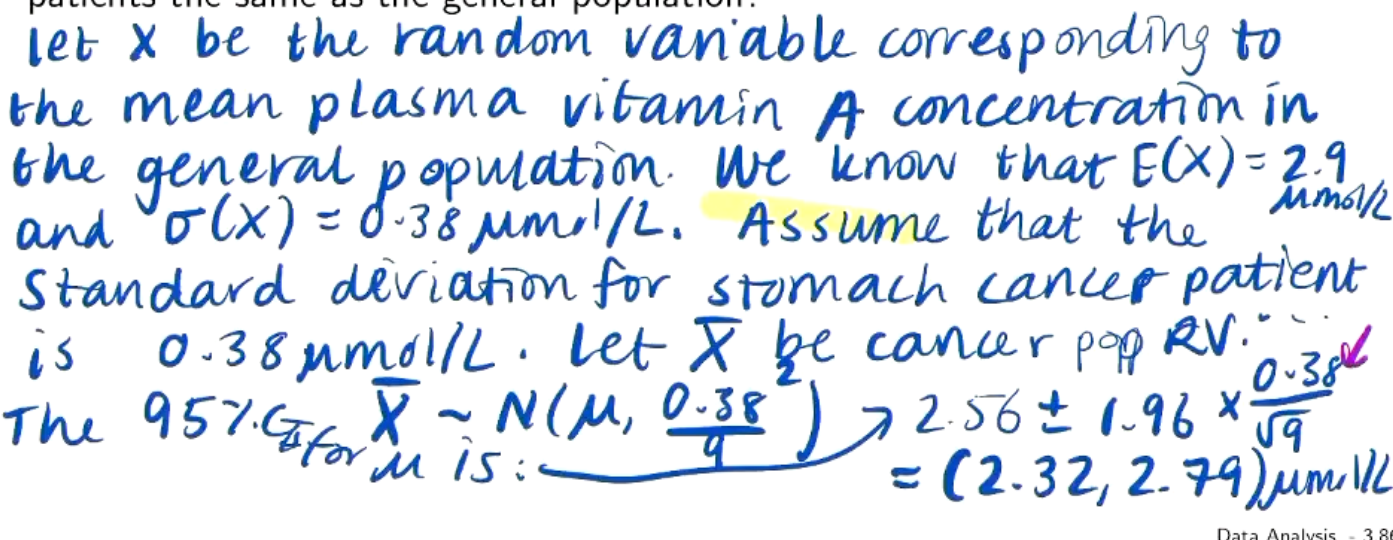 patients the same as the general population?
let X be the random variable corresponding to
the mean plasma vitamin A concentration in
the general population. We know that E(X) = 2.9 μmol/L
and σ(X) = 0.38 μmol/L. Assume that the
Standard deviation for stomach cancer patient
is 0.38 μmol/L. Let X̄ be cancer pop RV.
The 95% CI for μ is: X̄ ~ N(μ, 0.38²/9) → 2.56 ± 1.96 × 0.38/√9
= (2.32, 2.79) μmol/L
Data Analysis - 3.86